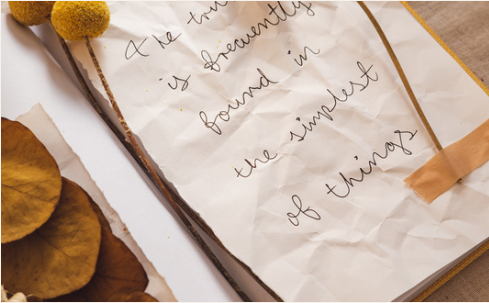 & the tru
is frequently
found in
the simplest
of things